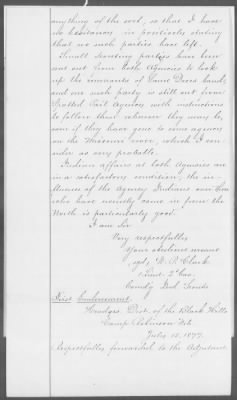 anything of the sort, so that I have
no hesitation in positively stating
that no such parties have left.
Small scouting parties have been
sent out from both Agencies to look
up the remnants of Lame Deers band,
and one such party is still out from
Spotted Tail Agency with instructions
to follow them wherever they may be,
even if they have gone to some agency
on the Missouri river, which I con-
sider as very probable.
Indian affairs at both Agencies are
in a satisfactory condition, the in-
fluence of the Agency Indians over those
who have recently come in from the
North is particularly good.
I am Sir
Very respectfully
Your obedient servant
(sgd) W. P. Clark
1 Lieut 2" Cav.
Comdg Ind. Scouts
First Endorsement.
Headqrs. Dist. of the Black Hills
Camp Robinson Neb.
July 13. 1877.
Respectfully forwarded to the Adjutant